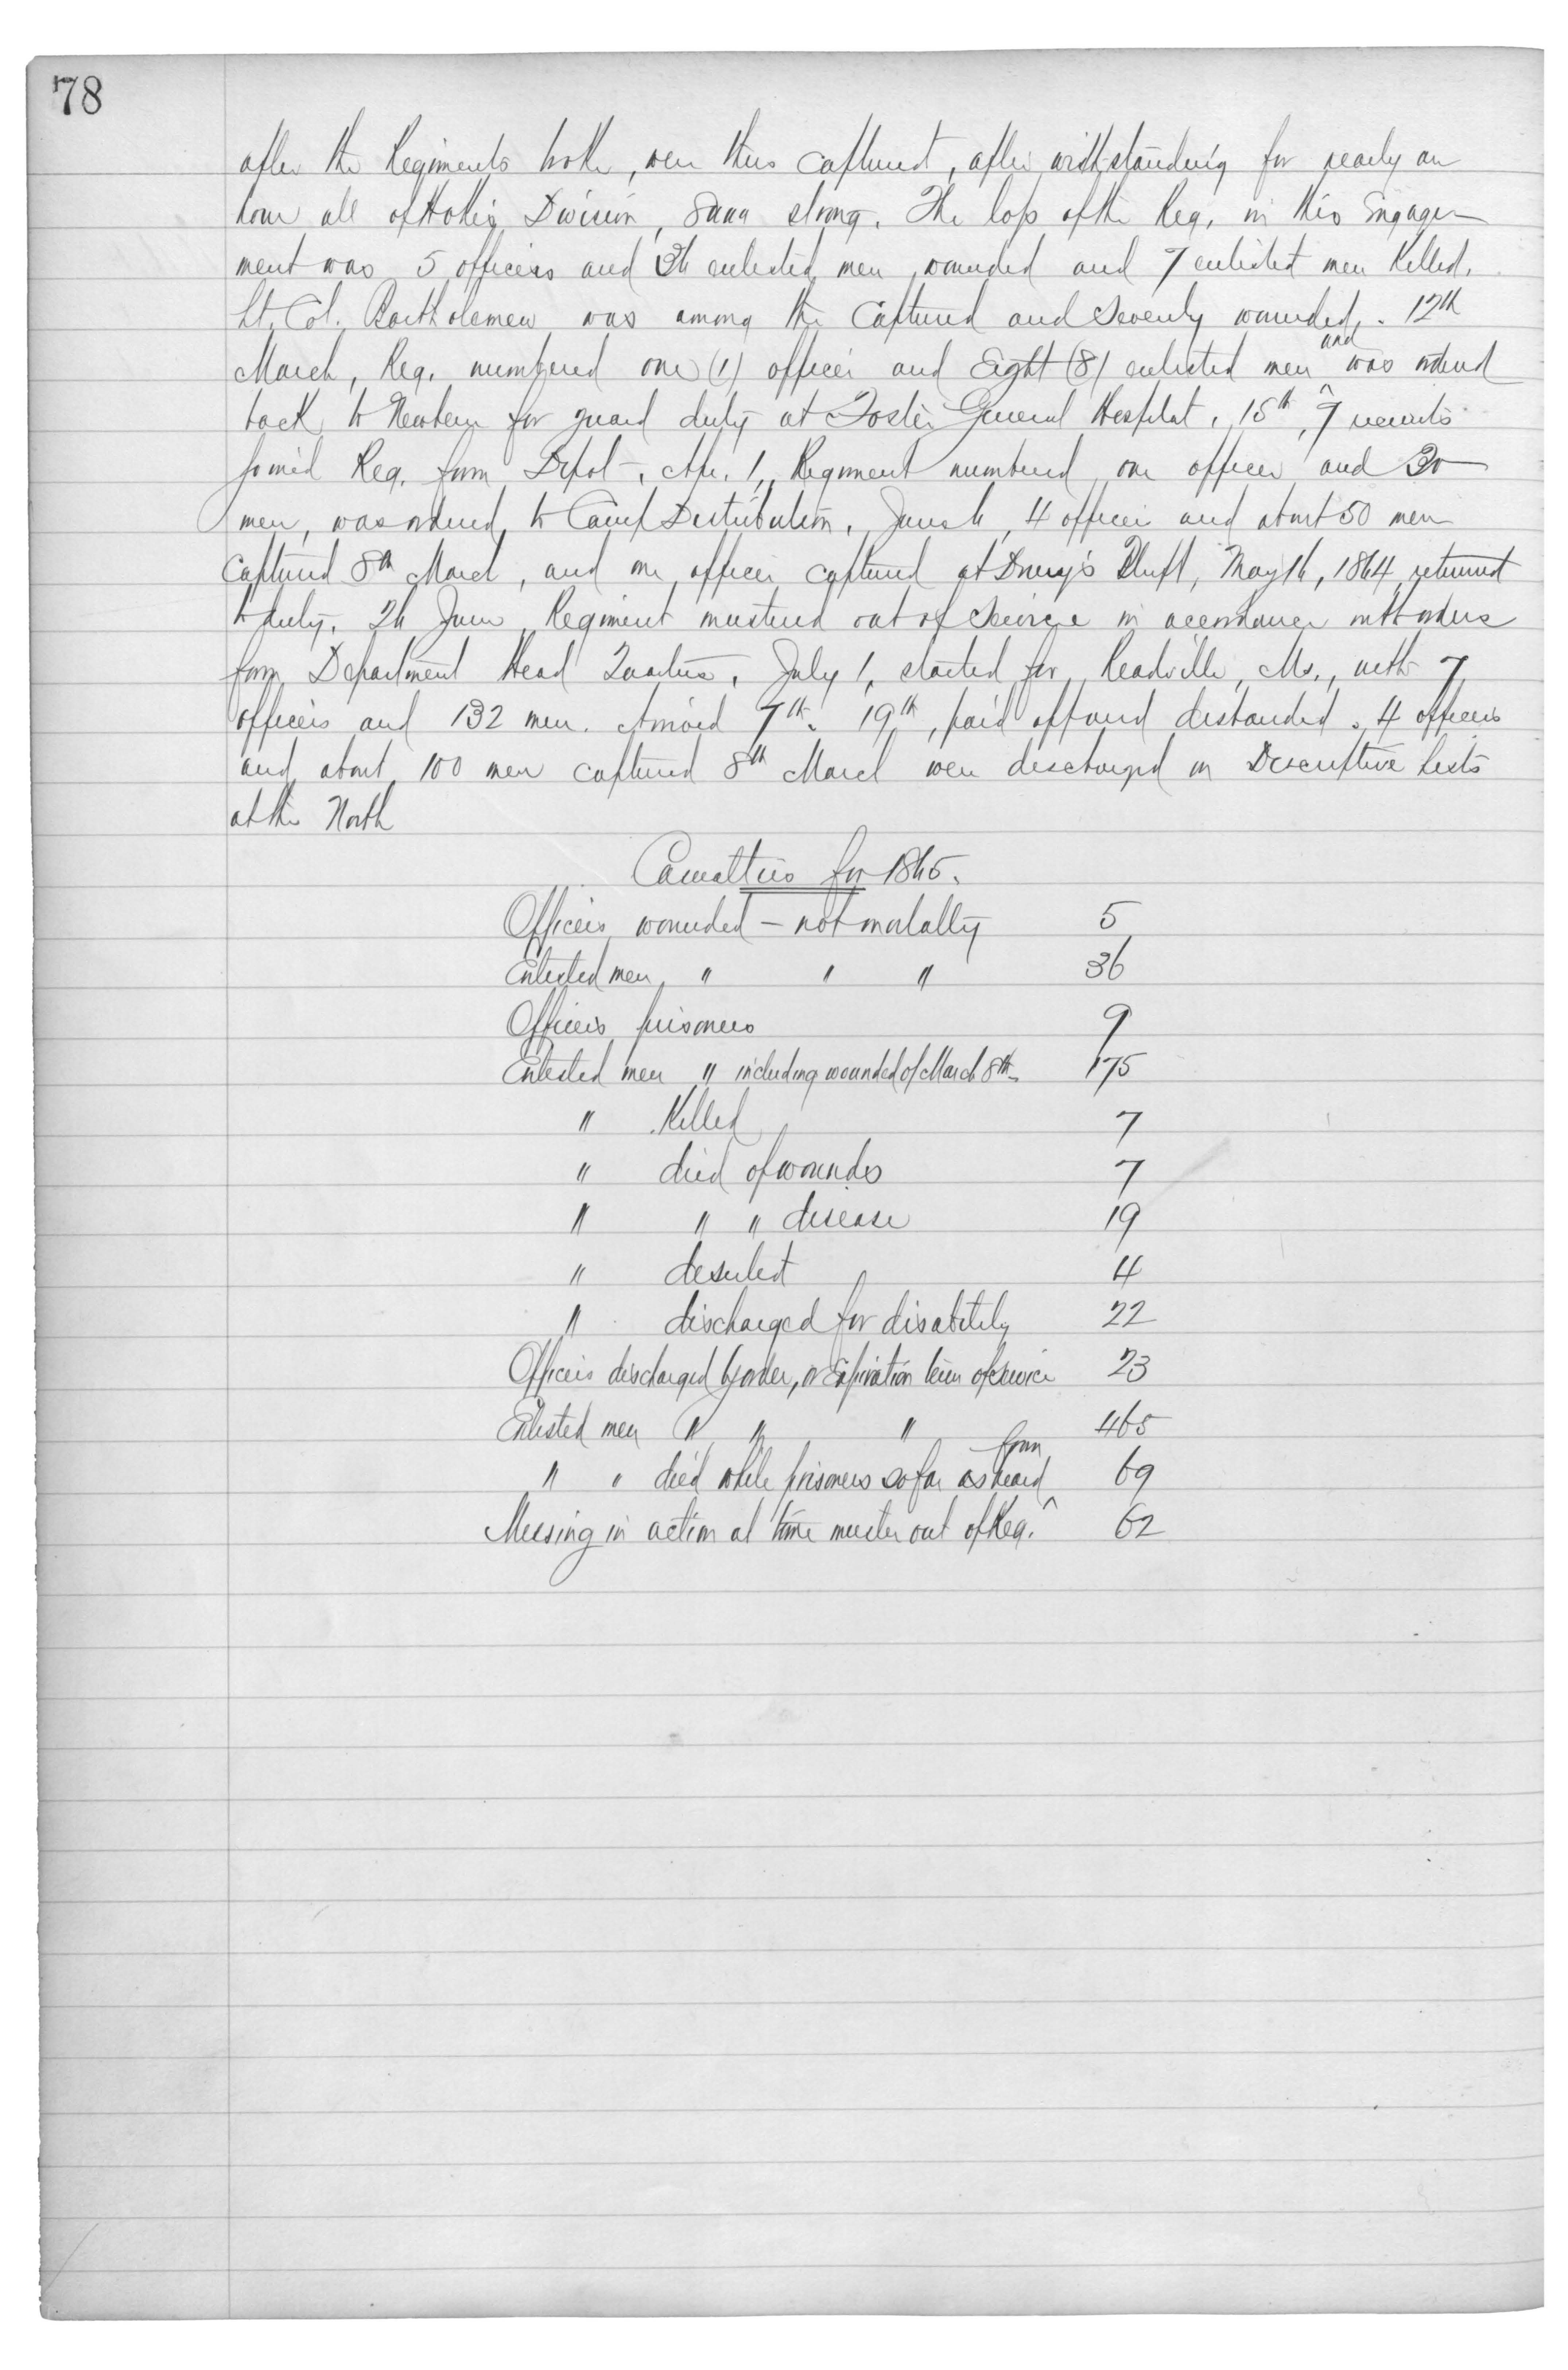 78
after the Regiments both, were thus captured, after withstanding for nearly an
hour all of Hoke's Division, 8000 strong. The loss of the Reg. in this Engage-
ment was 5 officers and 36 enlisted men wounded and 7 enlisted men Killed.
Lt. Col. Bartholemew was among the Captured and Severely wounded. 12th
March, Reg. numbered one (1) officer and Eight (8) enlisted men and was ordered
back to Newbern for guard duty at Foster General Hospital. 15th, 9 recruits
joined Reg. from Depot. Apr. 1, Regiment numbered one officer and 30
men, was ordered to Camp Distribution. June 6, 4 officers and about 50 men
Captured 8th March, and one officer captured at Drury's Bluff, May 16, 1864, returned
to duty. 26 June Regiment mustered out of Service in accordance with orders
from Department Head Quarters. July 1, started for Readville, Ms., with 7
officers and 132 men. Arrived 7th. 19th, paid off and disbanded. 4 officers
and about 100 men captured 8th March were discharged on Descriptive Lists
at the North
Casualties for 1865.
Officers wounded — not mortally 5
Enlisted men " " " 36
Officers prisoners 9
Enlisted men " including wounded of March 8th. 175
" Killed 7
" died of wounds 7
" " " disease 19
" deserted 4
" discharged for disability 22
Officers discharged by order, or Expiration term of service 23
Enlisted men " " " 465
" " died while prisoners so far as heard from 69
Missing in action at time muster out of Reg. 62